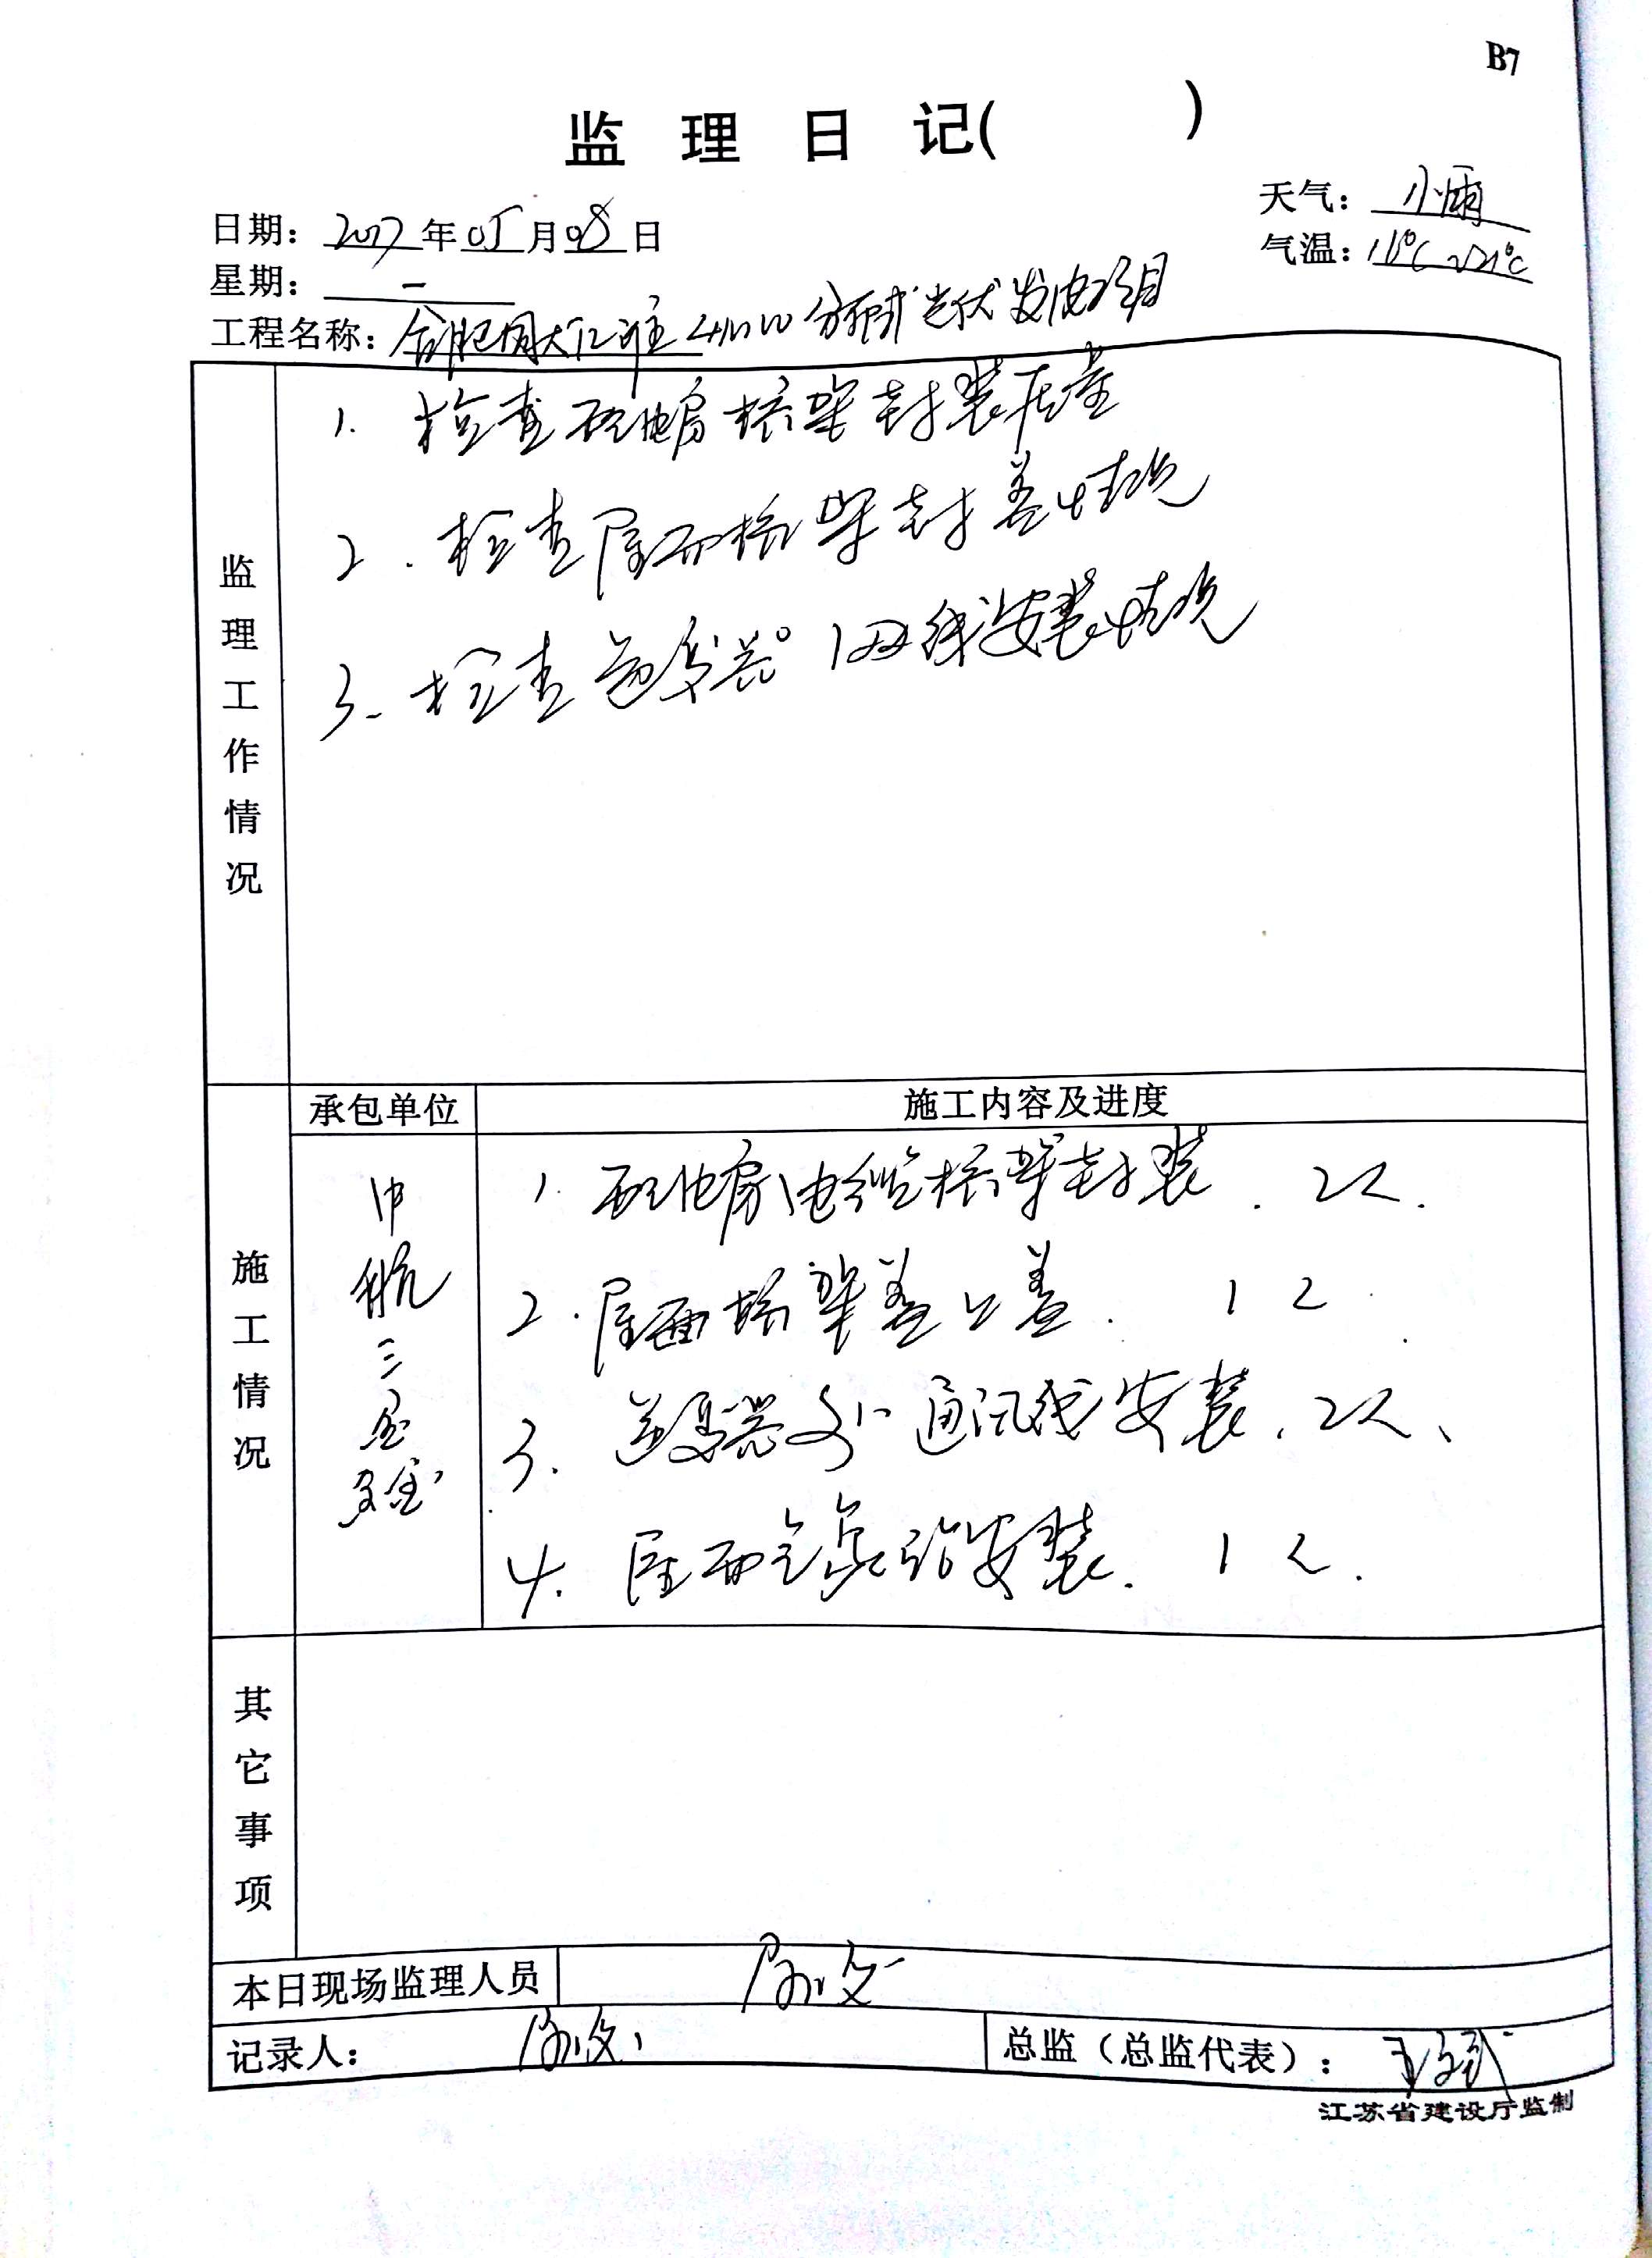 B7
监 理 日 记( )
天气: 小雨
日期: 2017年05月08日
气温: 16℃~21℃
星期: 一
工程名称: 合肥 4MW分布式光伏发电项目
监理工作情况
1. 检查配电房桥架封装质量
2. 检查屋面桥架封盖情况
3. 检查逆变器 网线安装情况
施工情况
承包单位 施工内容及进度
中航三鑫
1. 配电房电缆桥架封装. 2人.
2. 屋面桥架盖上盖. 1人.
3. 逆变器 通讯线安装. 2人.
4. 屋面 安装. 1人.
其它事项
本日现场监理人员
记录人:
总监(总监代表):
江苏省建设厅监制